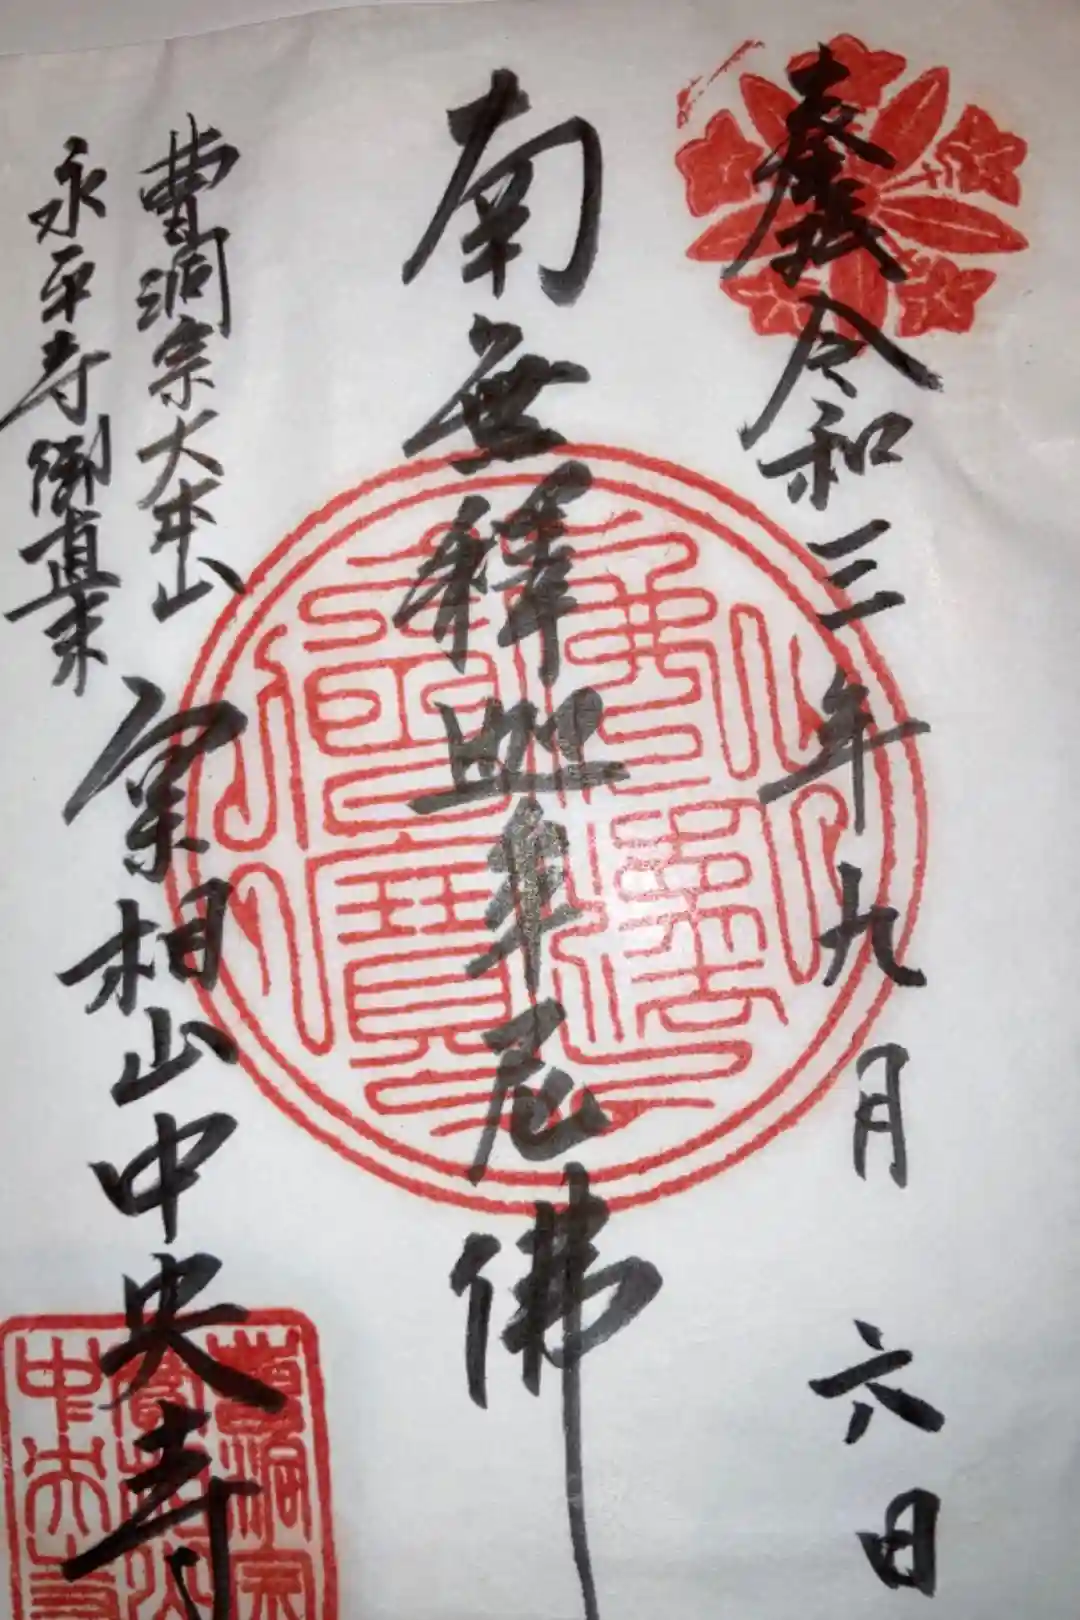 奉拝 令和三年九月六日
南無釋迦牟尼佛
曹洞宗大本山
永平寺御直末
實相山中央寺
佛法僧寶
曹洞宗
中央寺